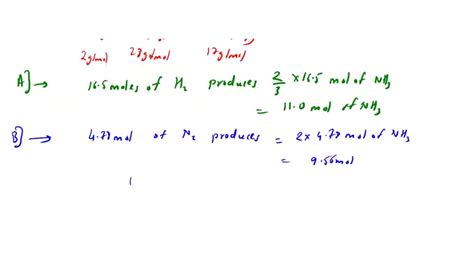 2g/mol 28g/mol 17g/mol
A] → 16.5 moles of H₂ produces 2/3 × 16.5 mol of NH₃
= 11.0 mol of NH₃
B] → 4.78 mol of N₂ produces = 2 × 4.78 mol of NH₃
= 9.56 mol